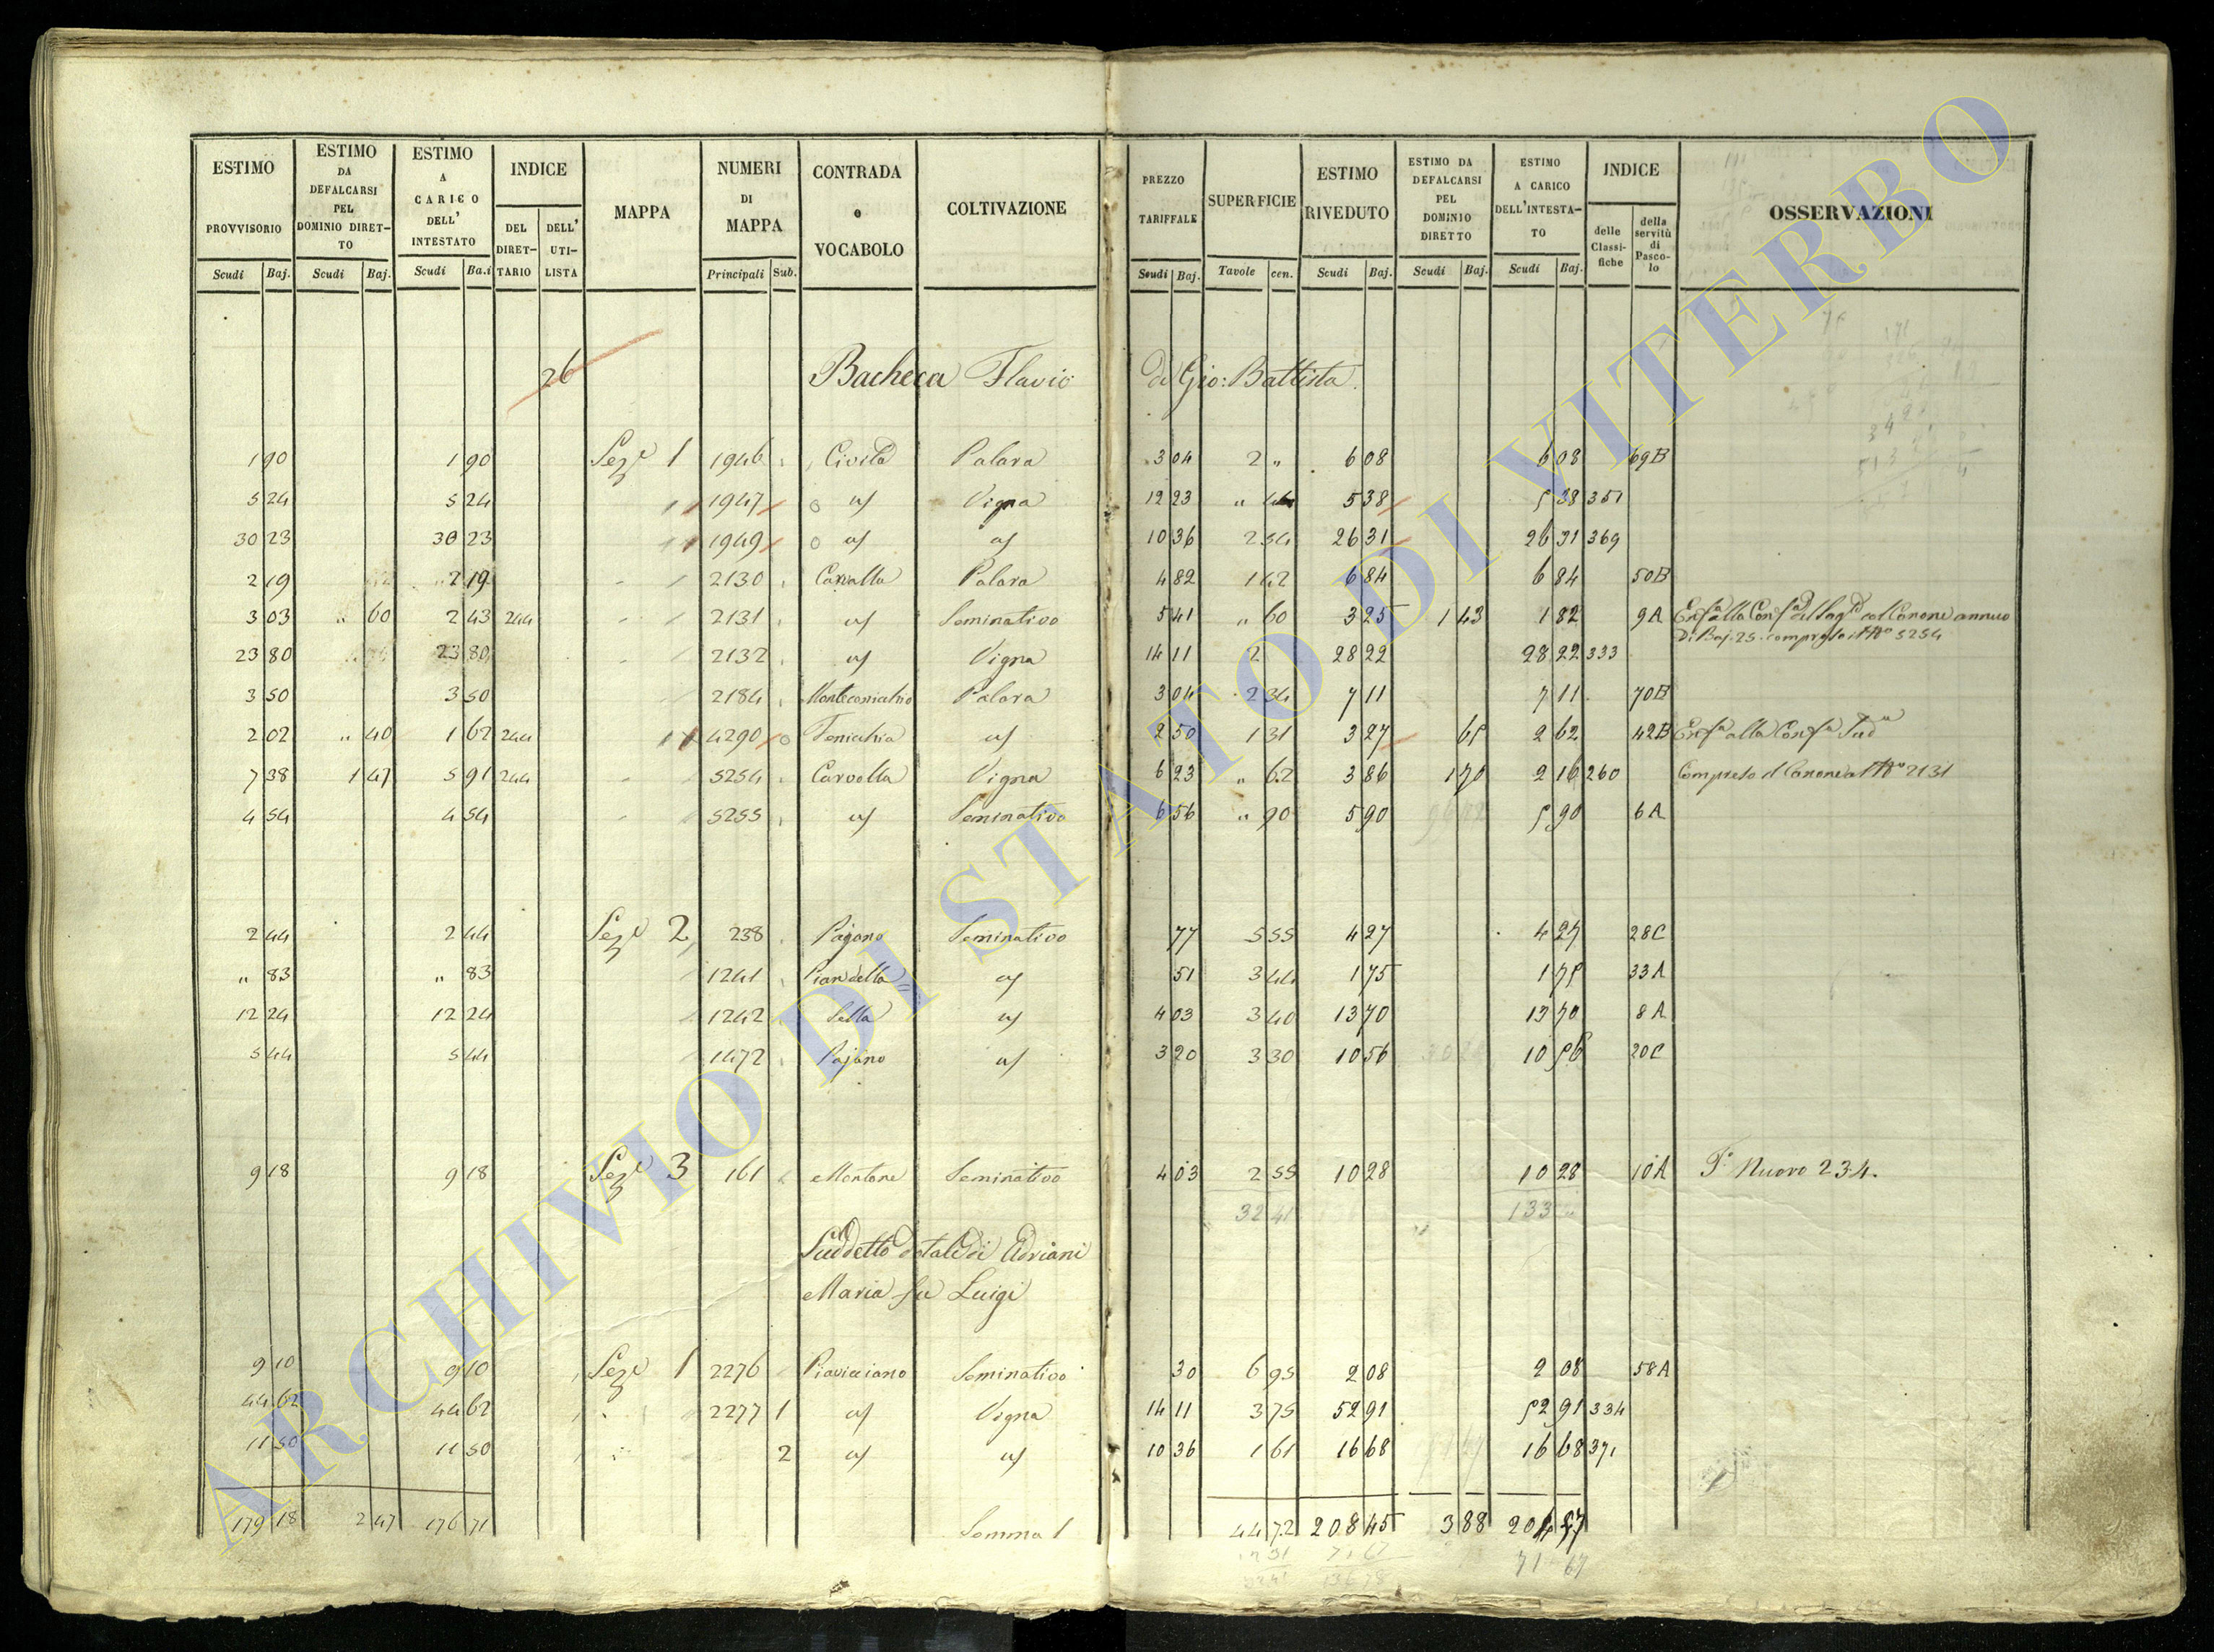 ESTIMO PROVVISORIO Scudi Baj.
ESTIMO DA DEFALCARSI PEL DOMINIO DIRETTO Scudi Baj.
ESTIMO A CARICO DELL' INTESTATO Scudi Ba.i
INDICE DEL DIRETTARIO DELL' UTILISTA
MAPPA
NUMERI DI MAPPA Principali Sub.
CONTRADA e VOCABOLO
COLTIVAZIONE
PREZZO TARIFFALE Scudi Baj.
SUPERFICIE Tavole cen.
ESTIMO RIVEDUTO Scudi Baj.
ESTIMO DA DEFALCARSI PEL DOMINIO DIRETTO Scudi Baj.
ESTIMO A CARICO DELL'INTESTATO Scudi Baj.
INDICE delle Classifiche della servitù di Pascolo
OSSERVAZIONI
26 Bacheca Flavio di Gio: Battista
1 90 1 90 Sez.e 1 1946 Civita Palara 3 04 2 " 6 08 6 08 69B
5 24 5 24 1947 o a/ Vigna 12 23 " 5 38 5 38 351
30 23 30 23 1949 o a/ a/ 10 36 2 54 26 31 26 31 369
2 19 2 19 2130 Palara 4 82 1 42 6 84 6 84 50B
3 03 " 60 2 43 244 2131 a/ Seminativo 5 41 " 60 3 25 1 43 1 82 9A
Di Baj. 25. 5254
23 80 23 80 2132 a/ Vigna 14 11 2 28 22 28 22 333
3 50 3 50 2184 Palara 3 04 2 34 7 11 7 11 70B
2 02 " 40 1 62 244 4290 o a/ 2 50 1 31 3 27 65 2 62 42B
7 38 1 47 5 91 244 5254 Carvolla Vigna 6 23 " 62 3 86 1 70 2 16 260 Compreso il Canone al N.o 2131
4 54 4 54 5255 a/ Seminativo 6 56 " 90 5 90 5 90 6A
2 44 2 44 Sez.e 2 238 Pajano Seminativo 77 5 55 4 27 4 27 28C
" 83 " 83 1241 Pian della= a/ 51 3 44 1 75 1 75 33A
12 24 12 24 1242 Sella a/ 4 03 3 40 13 70 13 70 8A
5 44 5 44 1472 Pajano a/ 3 20 3 30 10 56 10 56 20C
9 18 9 18 Sez.e 3 161 Montone Seminativo 4 03 2 55 10 28 10 28 10A F.o Nuovo 234.
32 41 133
Suddetto dotale di Adriani
Maria fu Luigi
9 10 9 10 Sez.e 1 2276 Piaviciano Seminativo 30 6 95 2 08 2 08 58A
44 62 44 62 2277 1 a/ Vigna 14 11 3 75 52 91 52 91 334
11 50 11 50 2 a/ a/ 10 36 1 61 16 68 16 68 371
179 18 2 47 176 71 Somma 1 44 72 208 45 3 88 204 57
71 67
ARCHIVIO DI STATO DI VITERBO